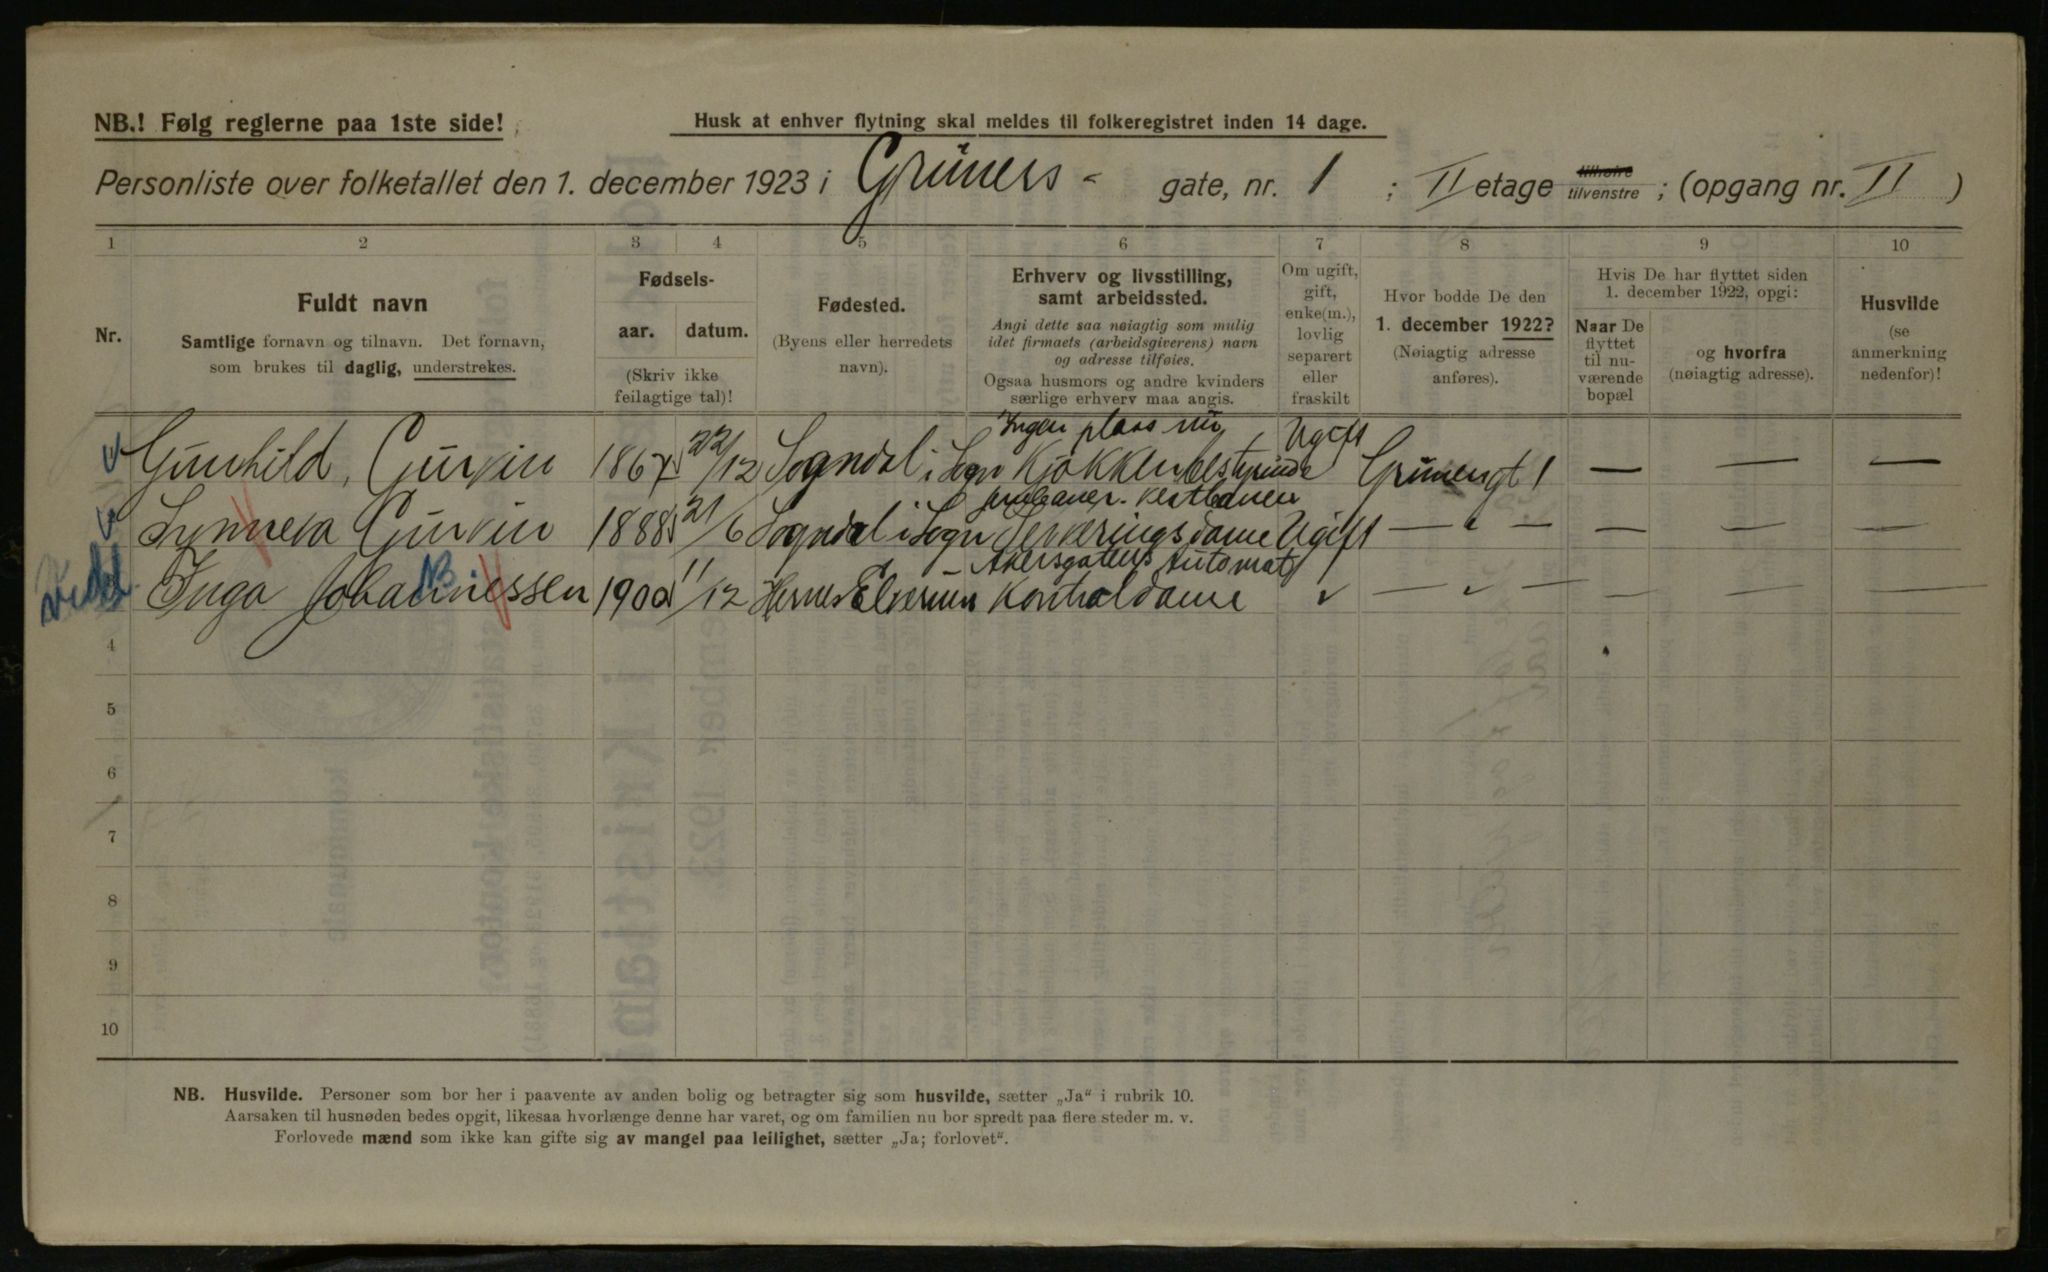 NB.! Følg reglerne paa 1ste side!
Husk at enhver flytning skal meldes til folkeregistret inden 14 dage.
Personliste over folketallet den 1. december 1923 i Grüners - gate, nr. 1 ; II etage tilhøire tilvenstre ; (opgang nr. II )
1 2 3 4 5 6 7 8 9 10
Nr.
Fuldt navn
Samtlige fornavn og tilnavn. Det fornavn,
som brukes til daglig, understrekes.
Fødsels-
aar. datum.
(Skriv ikke
feilagtige tal)!
Fødested.
(Byens eller herredets
navn).
Erhverv og livsstilling,
samt arbeidssted.
Angi dette saa nøiagtig som mulig
idet firmaets (arbeidsgiverens) navn
og adresse tilføies.
Ogsaa husmors og andre kvinders
særlige erhverv maa angis.
Om ugift,
gift,
enke(m.),
lovlig
separert
eller
fraskilt
Hvor bodde De den
1. december 1922?
(Nøiagtig adresse
anføres).
Hvis De har flyttet siden
1. december 1922, opgi:
Naar De
flyttet
til nu-
værende
bopæl
og hvorfra
(nøiagtig adresse).
Husvilde
(se
anmerkning
nedenfor)!
Ingen plass nu
Gunhild, Gurvin 1867 22/12 Sogndal i Sogn Kjøkkenbestyrinde Ugift Grünersgt 1 — — —
Synneva Gurvin 1888 21/6 Sogndal i Sogn Serveringsdame Ugift — " — — — —
Akersgatens Automat
Inga Johannessen 1900 11/12 Hernes Elverum Kontroldame " — " — — — —
NB.
4
5
6
7
8
9
10
NB. Husvilde. Personer som bor her i paavente av anden bolig og betragter sig som husvilde, sætter „Ja“ i rubrik 10.
Aarsaken til husnøden bedes opgit, likesaa hvorlænge denne har varet, og om familien nu bor spredt paa flere steder m. v.
Forlovede mænd som ikke kan gifte sig av mangel paa leilighet, sætter „Ja; forlovet“.